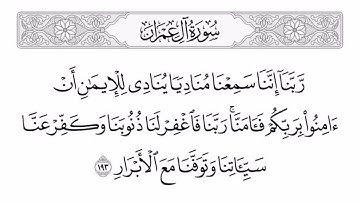 سُورَةُ آلِ عِمْرَان
رَّبَّنَآ إِنَّنَا سَمِعْنَا مُنَادِيًا يُنَادِى لِلْإِيمَٰنِ أَنْ
ءَامِنُوا۟ بِرَبِّكُمْ فَـَٔامَنَّا ۚ رَبَّنَا فَٱغْفِرْ لَنَا ذُنُوبَنَا وَكَفِّرْ عَنَّا
سَيِّـَٔاتِنَا وَتَوَفَّنَا مَعَ ٱلْأَبْرَارِ ١٩٣